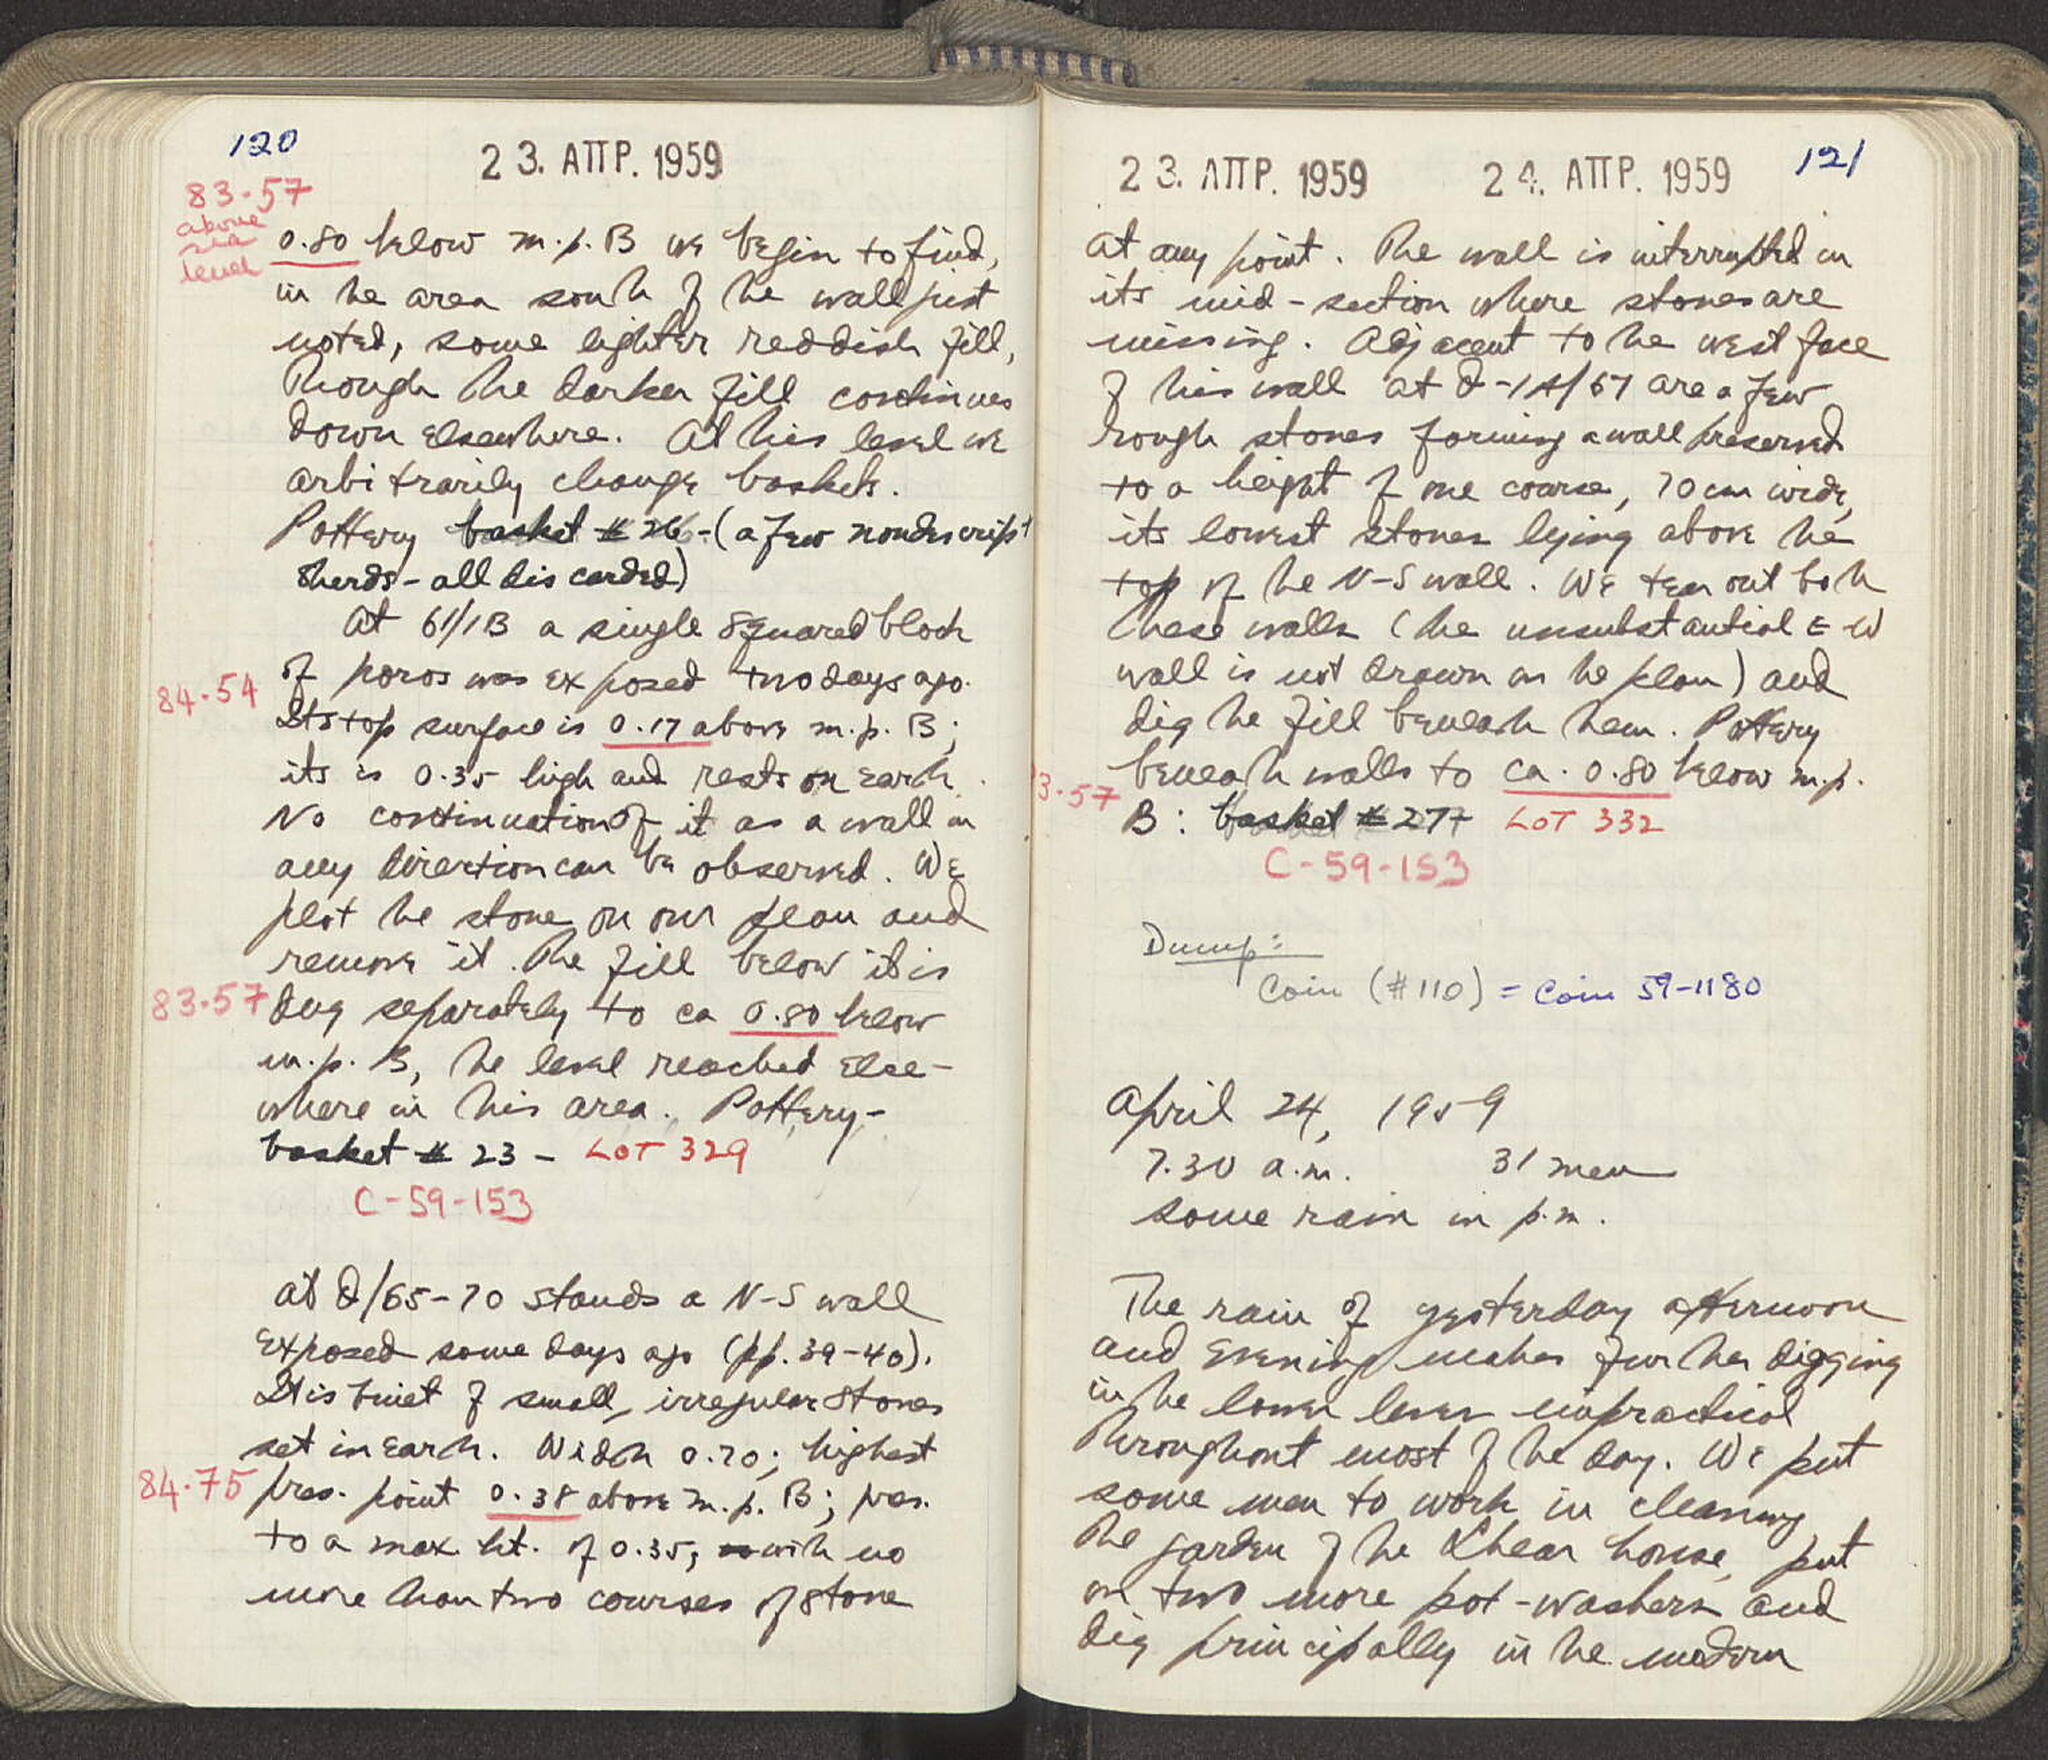 120
23. ΑΠΡ. 1959
83.57
above
sea
level
0.80 below m.p. B we begin to find,
in the area south of the wall just
noted, some lighter reddish fill,
though the darker fill continues
down elsewhere. At this level we
arbitrarily change baskets.
Pottery basket # 26 - (a few nondescript
sherds - all discarded)
At 61/1B a single squared block
84.54
of poros was exposed two days ago.
Its top surface is 0.17 above m.p. B;
its is 0.35 high and rests on earth.
No continuation of it as a wall in
any direction can be observed. We
plot the stone on our plan and
remove it. The fill below it is
83.57
dug separately to ca 0.80 below
m.p. B, the level reached else-
where in this area. Pottery -
basket # 23 - LOT 329
C-59-153
At /65-70 stands a N-S wall
exposed some days ago (pp. 39-40).
It is built of small, irregular stones
set in earth. Width 0.70; highest
84.75
pres. point 0.38 above m.p. B; pres.
to a max. ht. of 0.35, with no
more than two courses of stone
23. ΑΠΡ. 1959
24. ΑΠΡ. 1959
121
at any point. The wall is interrupted in
its mid-section where stones are
missing. Adjacent to the west face
of this wall at are a few
rough stones forming a wall preserved
to a height of one course, 70 cm wide,
its lowest stones lying above the
top of the N-S wall. We tear out both
these walls (the unsubstantial E-W
wall is not drawn on the plan) and
dig the fill beneath them. Pottery
beneath walls to ca. 0.80 below m.p.
3.57
B: basket # 27 LOT 332
C-59-153
Dump:
Coin (#110) = Coin 59-1180
April 24, 1959
7.30 a.m. 31 men
some rain in p.m.
The rain of yesterday afternoon
and evening makes further digging
in the lower levels impractical
throughout most of the day. We put
some men to work in cleaning
the garden of the Shear house, put
on two more pot-washers and
dig principally in the modern